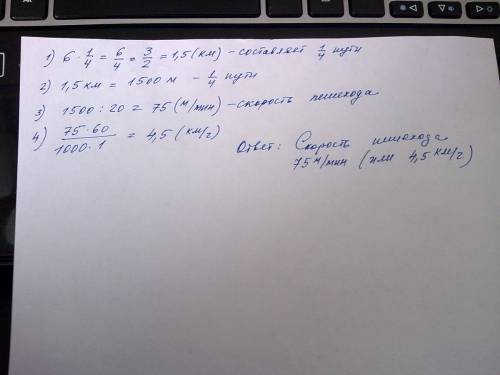 1) 6 · 1/4 = 6/4 = 3/2 = 1,5 (км) – составляет 1/4 пути
2) 1,5 км = 1500 м – 1/4 пути
3) 1500 : 20 = 75 (м/мин) – скорость пешехода
4) 75·60/1000·1 = 4,5 (км/г)
Ответ: Скорость пешехода
75 м/мин (или 4,5 км/г.)